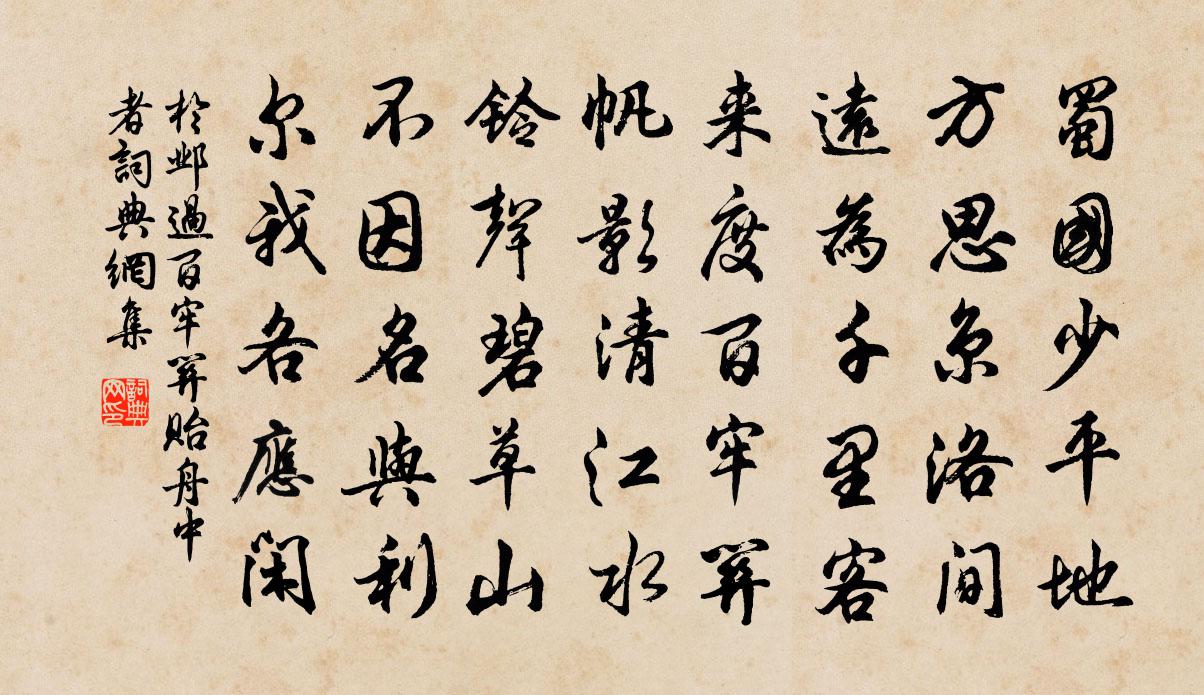 蜀國少平地
方思京洛間
遠為千里客
来度百牢關
帆影清江水
鈴聲碧草山
不因名與利
尔我各應閑
於鄴過百牢關貽舟中
者詞典網集
詞典网印